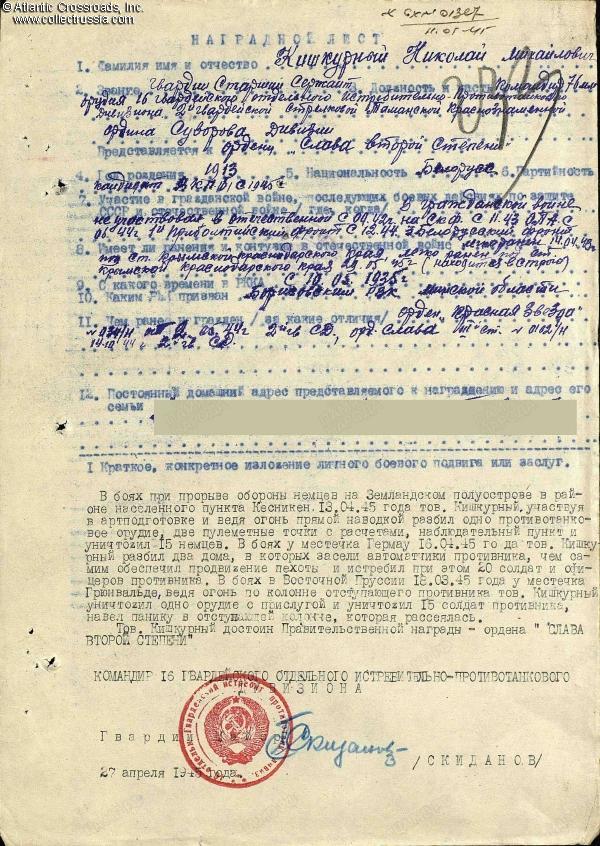 © Atlantic Crossroads, Inc.
www.collectrussia.com
НАГРАДНОЙ ЛИСТ
1. Фамилия имя и отчество Кишкурный Николай Михайлович
2. Звание Гвардии Старший Сержант 3. Должность и часть Командир 76 мм
орудия 16 Гвардейского отдельного Истребительно Противотанкового
дивизиона 2 Гвардейской стрелковой Таманской Краснознаменной
ордена Суворова дивизии
Представляется к ордену „Слава второй степени"
4. Год рождения 1913 5. Национальность Белорус 6. Партийность
кандидат ВКП(б) с 1945 г
7. Участие в гражданской войне, последующих боевых действиях по защите
СССР и отечественной войне /где, когда/ В гражданской войне
не участвовал в отечественной с
8. Имеет ли ранения и контузии в отечественной войне легко ранен 14.04.43г
под ст. Крымской краснодарского края легко ранен под ст
крымской краснодарского края (находится в строю)
9. С какого времени в РККА С 10.03.1935г
10. Каким РВК призван Борисовский РВК минской области
11. Чем ранее награжден /за какие отличия/ орден „Красная Звезда"
2 гв. СД, орд. Слава "III" ст. № 0102/Н
2 гв. СД.
12. Постоянный домашний адрес представляемого к награждению и адрес его
семьи
I Краткое, конкретное изложение личного боевого подвига или заслуг.
В боях при прорыве обороны немцев на Земландском полуострове в рай-
оне населенного пункта Кесникен. 13.04.45 года тов. Кишкурный, участвуя
в артподготовке и ведя огонь прямой наводкой разбил одно противотанко-
вое орудие, две пулеметные точки с расчетами, наблюдательный пункт и
уничтожил 15 немцев. В бою у местечка Гермау 16.04.45 года тов. Кишку-
рный разбил два дома, в которых засели автоматчики противника, чем са-
мим обеспечил продвижение пехоты и истребил при этом 20 солдат и офи-
церов противника. В боях в Восточной Пруссии 18.03.45 года у местечка
Грюнвальде, ведя огонь по колонне отступающего противника тов. Кишкурный
уничтожил одно орудие с прислугой и уничтожил 15 солдат противника,
навел панику в отступающей колонне, которая рассеялась.
Тов. Кишкурный достоин Правительственной награды - ордена " СЛАВА
ВТОРОЙ СТЕПЕНИ"
КОМАНДИР 16 ГВАРДЕЙСКОГО ОТДЕЛЬНОГО ИСТРЕБИТЕЛЬНО-ПРОТИВОТАНКОВОГО
ДИВИЗИОНА
Гвардии майор Скиданов /СКИДАНОВ/
27 апреля 1945 года.